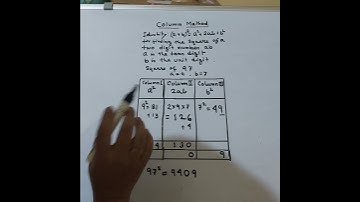 Column Method
Identity (a+b)² = a²+2ab+b²
for finding the square of a
two digit number ab
a is the tens digit
b is the unit digit
Square of 97
a=9, b=7
Column I Column II Column III
a² 2ab b²
9²=81 2×9×7 7²=49
+13 =126
+4
4 130
0 9
97²=9409